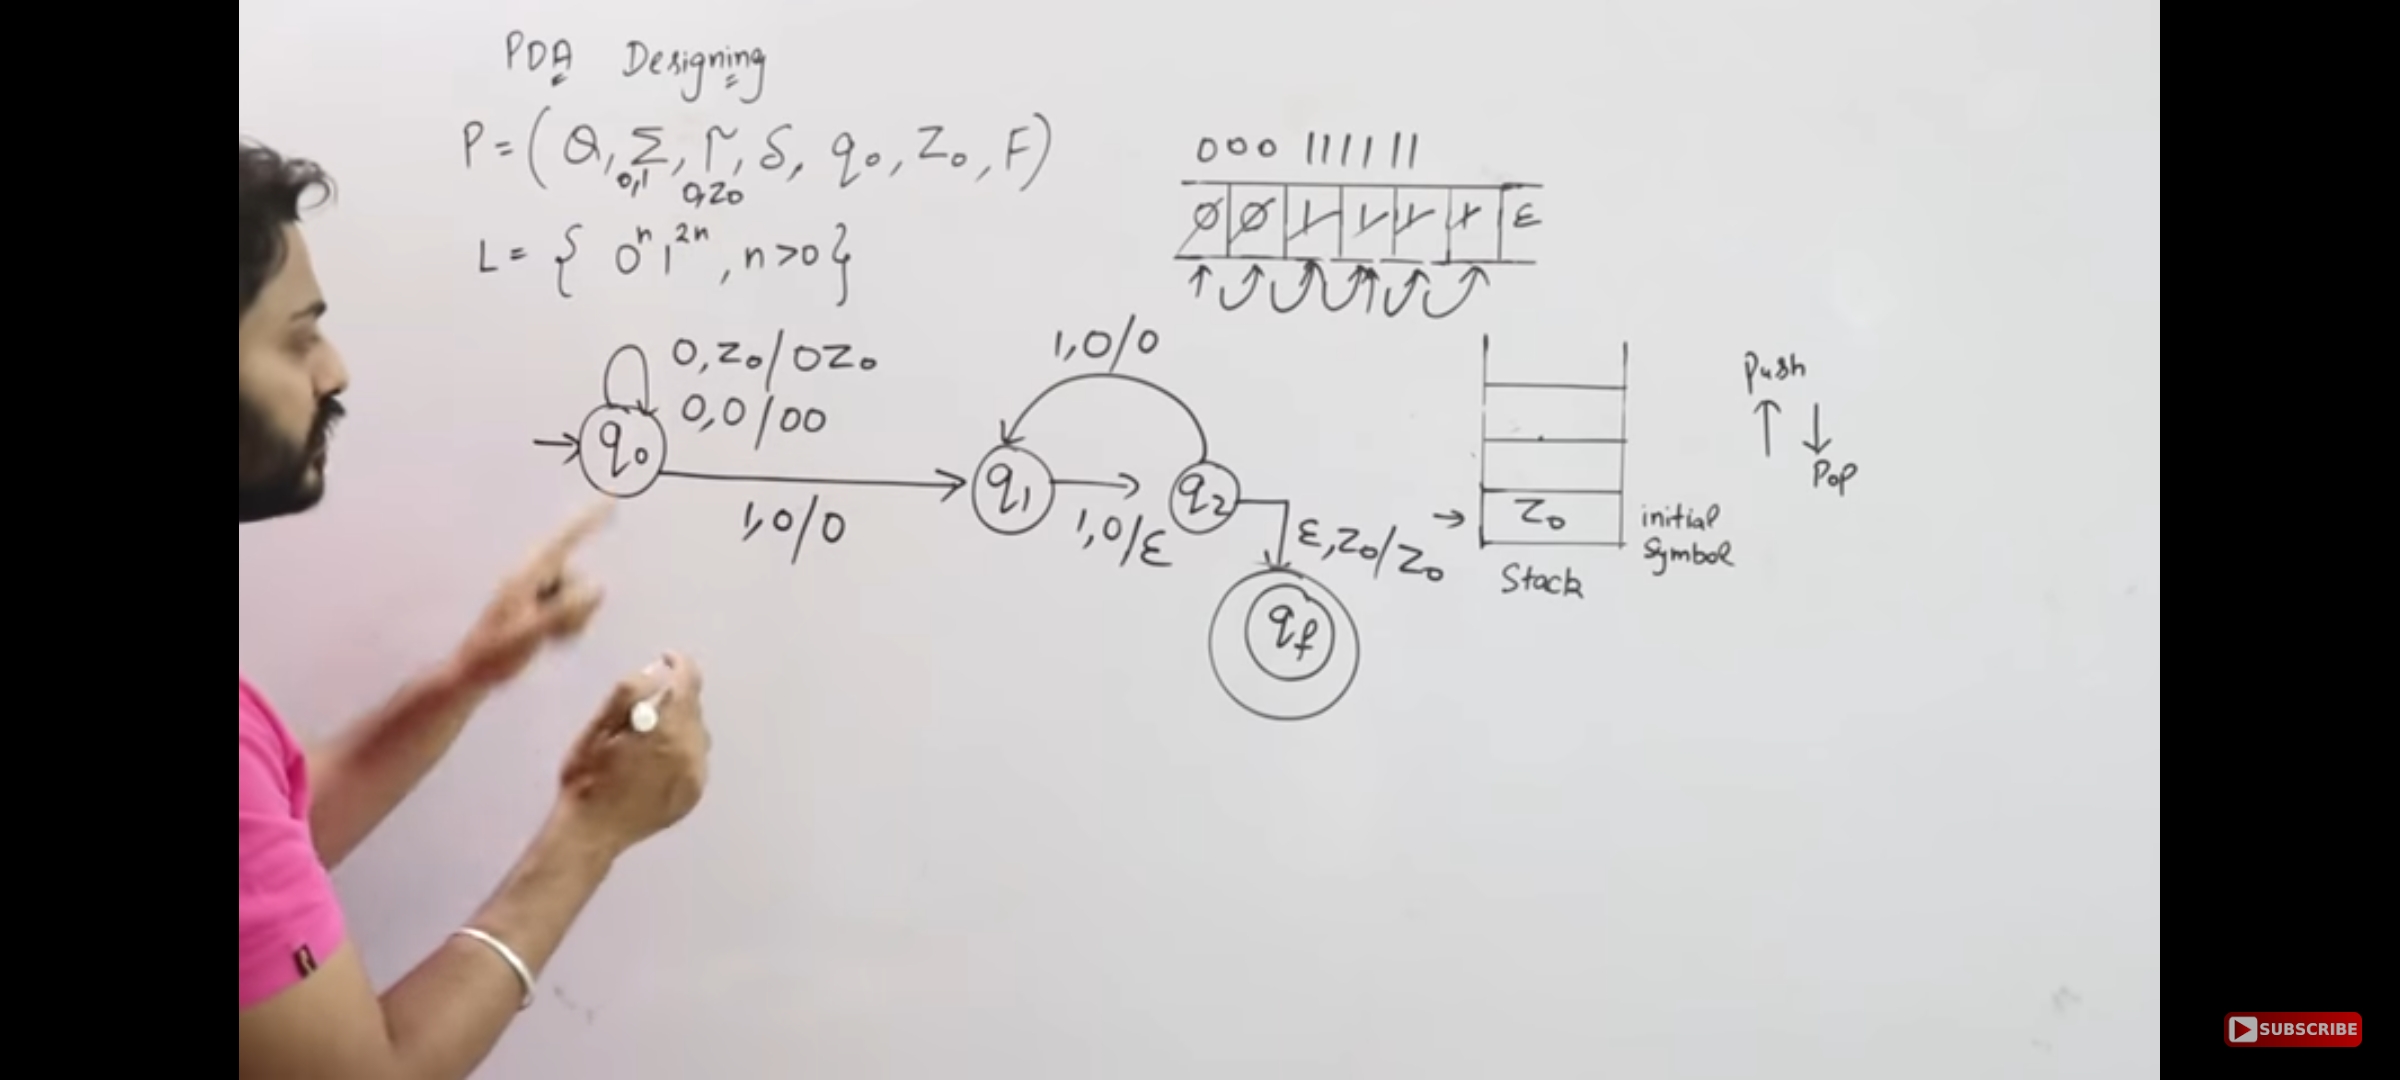 PDA Designing
P = (Q, Σ, Γ, δ, q₀, Z₀, F)
0,1 0,Z₀
L = { 0ⁿ 1²ⁿ, n>0 }
000 111111
0 0 1 1 1 1 ε
0,Z₀/0Z₀
0,0/00
1,0/0
q₀
1,0/0
q₁
1,0/ε
q₂
ε,Z₀/Z₀
qf
Z₀
initial
Symbol
Stack
Push
↑ ↓
Pop
SUBSCRIBE